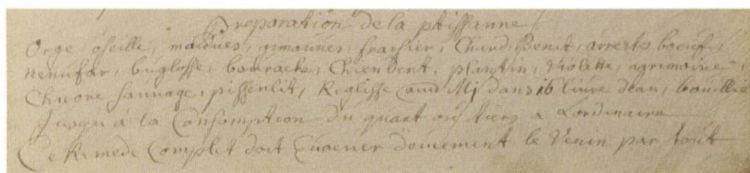 Preparation de la ptissanne
Orge, oseille, mauves, guimauves, fraisier, Chard Benit, arreste boeuf,
nenufar, buglosse, bourache, Chiendent, plantin, violette, agrimoine,
Chicore sauvage, pissenlit, Reglisse dans 16 livre d'eau, bouillir
Jusqu'a la Consomption du quart ou tiers a Lordinaire
Ce Remede Complet doit Evacuer doucement le Venin par tout